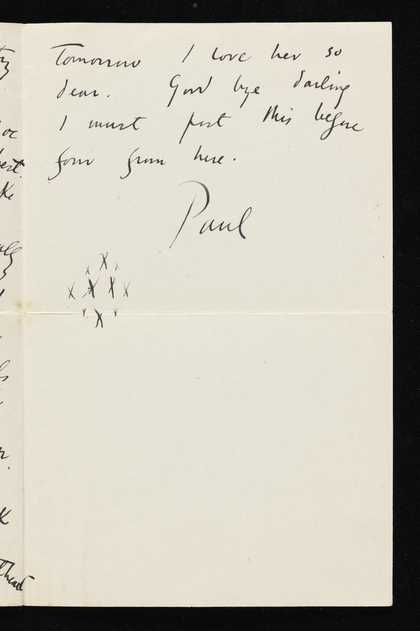 Tomorrow I love her so
dear. Good bye darling
I must post this before
four from here.
Paul
x
x x
x x x x
x x
x